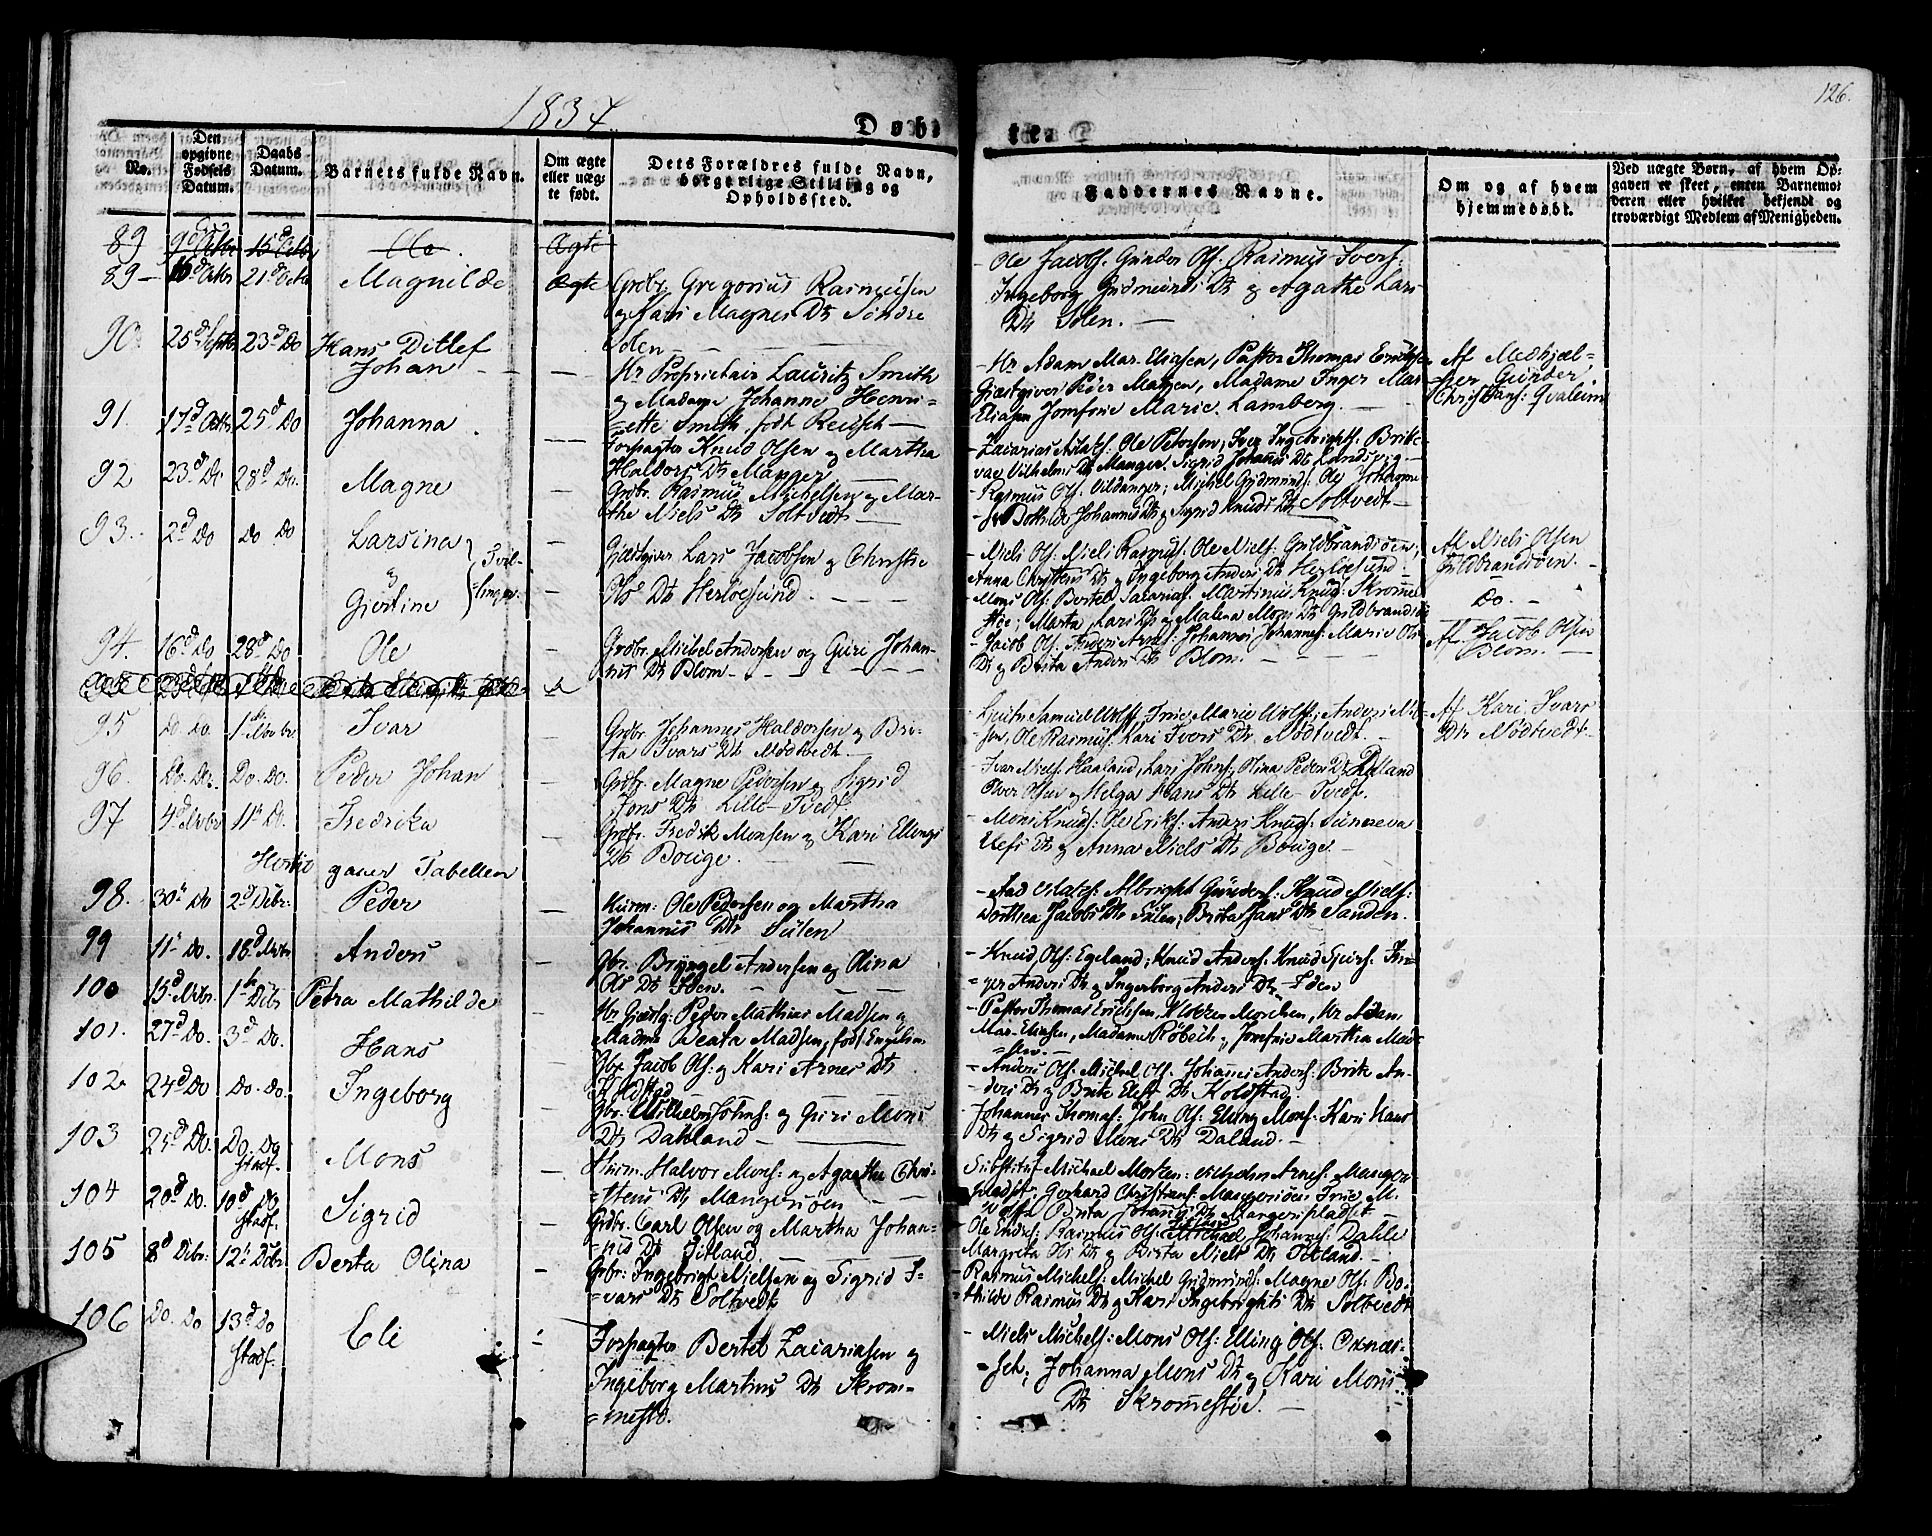 126.
1837.
Døbte
No.
Den opgivne Fødsels Datum.
Daabs Datum.
Barnets fulde Navn.
Om ægte eller uægte født.
Dets Forældres fulde Navn, borgerlige Stilling og Opholdssted.
Faddernes Navne.
Om og af hvem hjemmedøbt.
Ved uægte Børn, af hvem Opgaven er skeet, enten Barnemoderen eller hvilket bekjendt og troværdigt Medlem af Menigheden.
89 Ole Ægte
89 - 21d Octbr Magnilde Ægte
Grdbr. Gregorius Rasmusen
og Kari Magnes Dtr Søndre
Solen
- Ole Jacobs. Gunder Ols. Rasmus Ivers.
Ingeborg Gudmunds Dtr og Agathe Lars
Dtr Solen. -
90. 25d Septbr 23d Do Hans Ditlef
Johan -
Hr Proprietair Lauritz Smith
og Madame Johanne Henri=
=ette Smith, født Reusch -
- Hr Adam Mar. Eliasen, Pastor Thomas Erichsen
Gjæstgiver Peder Matzen, Madame Inger Mar
Eliasen Jomfrue Marie Lamberg. -
Af Medhjæl=
=per Gunder
Christians: Qvaleim
91. 17d Octbr 25d Do Johanna
Forpagter Knud Olsen og Martha
Haldors Dtr Manger
- Zacarias Aslaks. Ole Petersen, Iver Ingebrights. Brite
Vilhelms Dtr Manger. Sigrid Johannes Dtr Landsvig -
92 23d Do 28d Do. Magne
Grdbr. Rasmus Michelsen og Mar-
the Niels Dtr Soltvedt -
- Rasmus Ols. Vildanger; Michel Gudmunds: Ole Johanne
s: Bothilde Johannes Dtr og Sigrid Knuds Dtr Soltvedt -
93. 2d Do Do Do Larsina
og Tvil=
=linger
Gjertine
Gjæstgiver Lars Jacobsen og Christie
Ols Dtr Herløesund. - - -
- Niels Ols: Niels Rasmus: Ole Niels: Guldbrandsøen;
Anna Christens Dtr og Ingeborg Anders Dtr Herløesund.
Mons Ols: Bertel Sacarias. Martinus Knud. Skrome
støe; Marta Lars Dtr og Malena Mons Dtr Guldbrandsø
Af Niels Olsen
Guldbrandsøen. -
Do. -
94. 16d Do 28d Do Ole
Grdbr. Michel Andersen og Guri Johan-
nes Dtr Blom -
- Jacob Ols. Anders Arnes: Johannes Johannes: Marie Ols
Dtr og Brita Anders Dtr Blom. -
Af Jacob Olsen
Blom. -
95 Do Do. 1ste Novbr Ivar
Grdbr. Johannes Haldorsen og Bri-
ta Ivars Dtr Nødtvedt -
Samuel Wolf, Frue Marie Wolff; Anders Niel=
sen, Ole Rasmus: Kari Ivers Dtr Nødtvedt -
Af Kari Ivars
Dtr Nødtvedt -
96. Do. Do. Do. Do. Peder Johan
Grdbr. Magne Pedersen og Sigrid
Jons Dtr Lille Tvedt.
- Ivar Niels: Haaland, Lars Johns; Olina Peders Dtr Daland
Olver Olsen og Helga Hans Dtr Lille-Tvedt.
97 4d Novbr 11te Do. Fredrika
Grdbr. Fredrik Monsen og Kari Ellings
Dtr Bouge. -
- Mons Knuds: Ole Eriks: Anders Knuds: Sunneva
Dtr og Anna Niels Dtr Bouge -
Hertil gaaer Tabellen
98. 30te Do 2d Debr: Peder
Huusm: Ole Pedersen og Martha
Johannes Dtr Sulen
- Aad Matz: Albright Gunders: Knud Niels:
Dorthea Jacobs Dtr Sulen; Brita Jans Dtr Sanden.
99 11te Do. 18d Novbr Anders
Gbr. Brüngel Andersen og Olina
Ols Dtr Iden. -
- Knud Ols: Egeland; Knud Anders: Knud Sjurs: In=
=ger Anders Dtr og Ingerborg Anders Dtr Iden
100 15d Novbr. 1ste Debr Petra Mathilde
Hr Gjæstg: Peder Mathias Madsen og
Madme Beata Madsen, født Engelsen
- Pastor Thomas Erichsen, Klokker Monchen, Hr Adam
Mar. Eliasen, Madame Røbech, Jomfrue Martha Mad=
=sen. -
101. 27d Do. 3d Do. Hans
Gbr. Jacob Ols: og Kari Arnes Dtr
Koldstad
= Anders Ols: Michel Ols. Johannes Anders: Brite An-
ders Dtr og Brite Elefs Dtr Koldstad.
102 24d Do Do. Do. Ingeborg
Gbr. Wilhelm Johns: og Guri Mons
Dtr Dahland -
- Johannes Thomas: John Ols: Elling Mons: Kari Hans
Dtr og Sigrid Mons Dtr Daland. -
103 25d Do. Do. Do stadf. Mons
Huusm. Halvor Mons: og Agathe Chri=
=stens Dtr Mangersøen - -
Substitut Michael Morten: Wilhelm Arnes: Manger
pladset; Gerhard Christians: Mangersøen Frue M.
Wolff Brita Johannes Dtr Mangerspladset -
104 20d Do. 10d Do stadf. Sigrid
Grdbr. Carl Olsen og Martha Johan=
=nes Dtr Titland. -
- Ole Endres; Rasmus Ols. Michael Johannes: Dahle
Margreta Ols Dtr og Brita Niels Dtr Titland. -
105 8d Debr: 12te Debr Berta Olina
Grbr: Ingebrigt Nielsen og Sigrid I=
=vars Dtr Soltvedt
- Rasmus Michels: Michel Gudmunds: Magne Ols: Bo=
=thilde Rasmus Dtr og Kari Ingebrights Dtr Soltvedt
106 Do. Do 13d Do stadf. Eli
Forpagter Bertel Zacariasen og
Ingeborg Martins Dtr Skrom=
=mestø.
- Niels Michels: Mons Ols: Elling Ols.
Johanna Mons Dtr og Kari Mons
Dtr Skromestøe. -